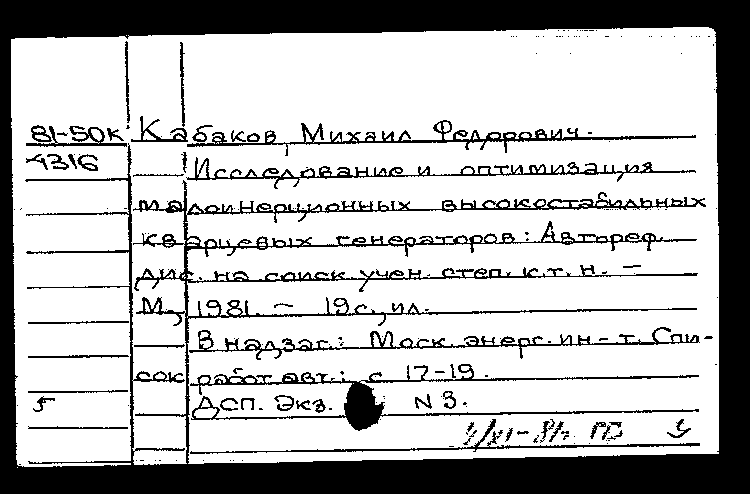 81-50К Кабаков, Михаил Федорович.
4316 Исследование и оптимизация
малоинерционных высокостабильных
кварцевых генераторов: Автореф.
дис. на соиск. учен. степ. к.т.н. —
М., 1981. — 19 с., ил.
В надзаг.: Моск. энерг. ин-т. Спи-
сок работ авт.: с 17-19.
5 ДСП. Экз. N 3.